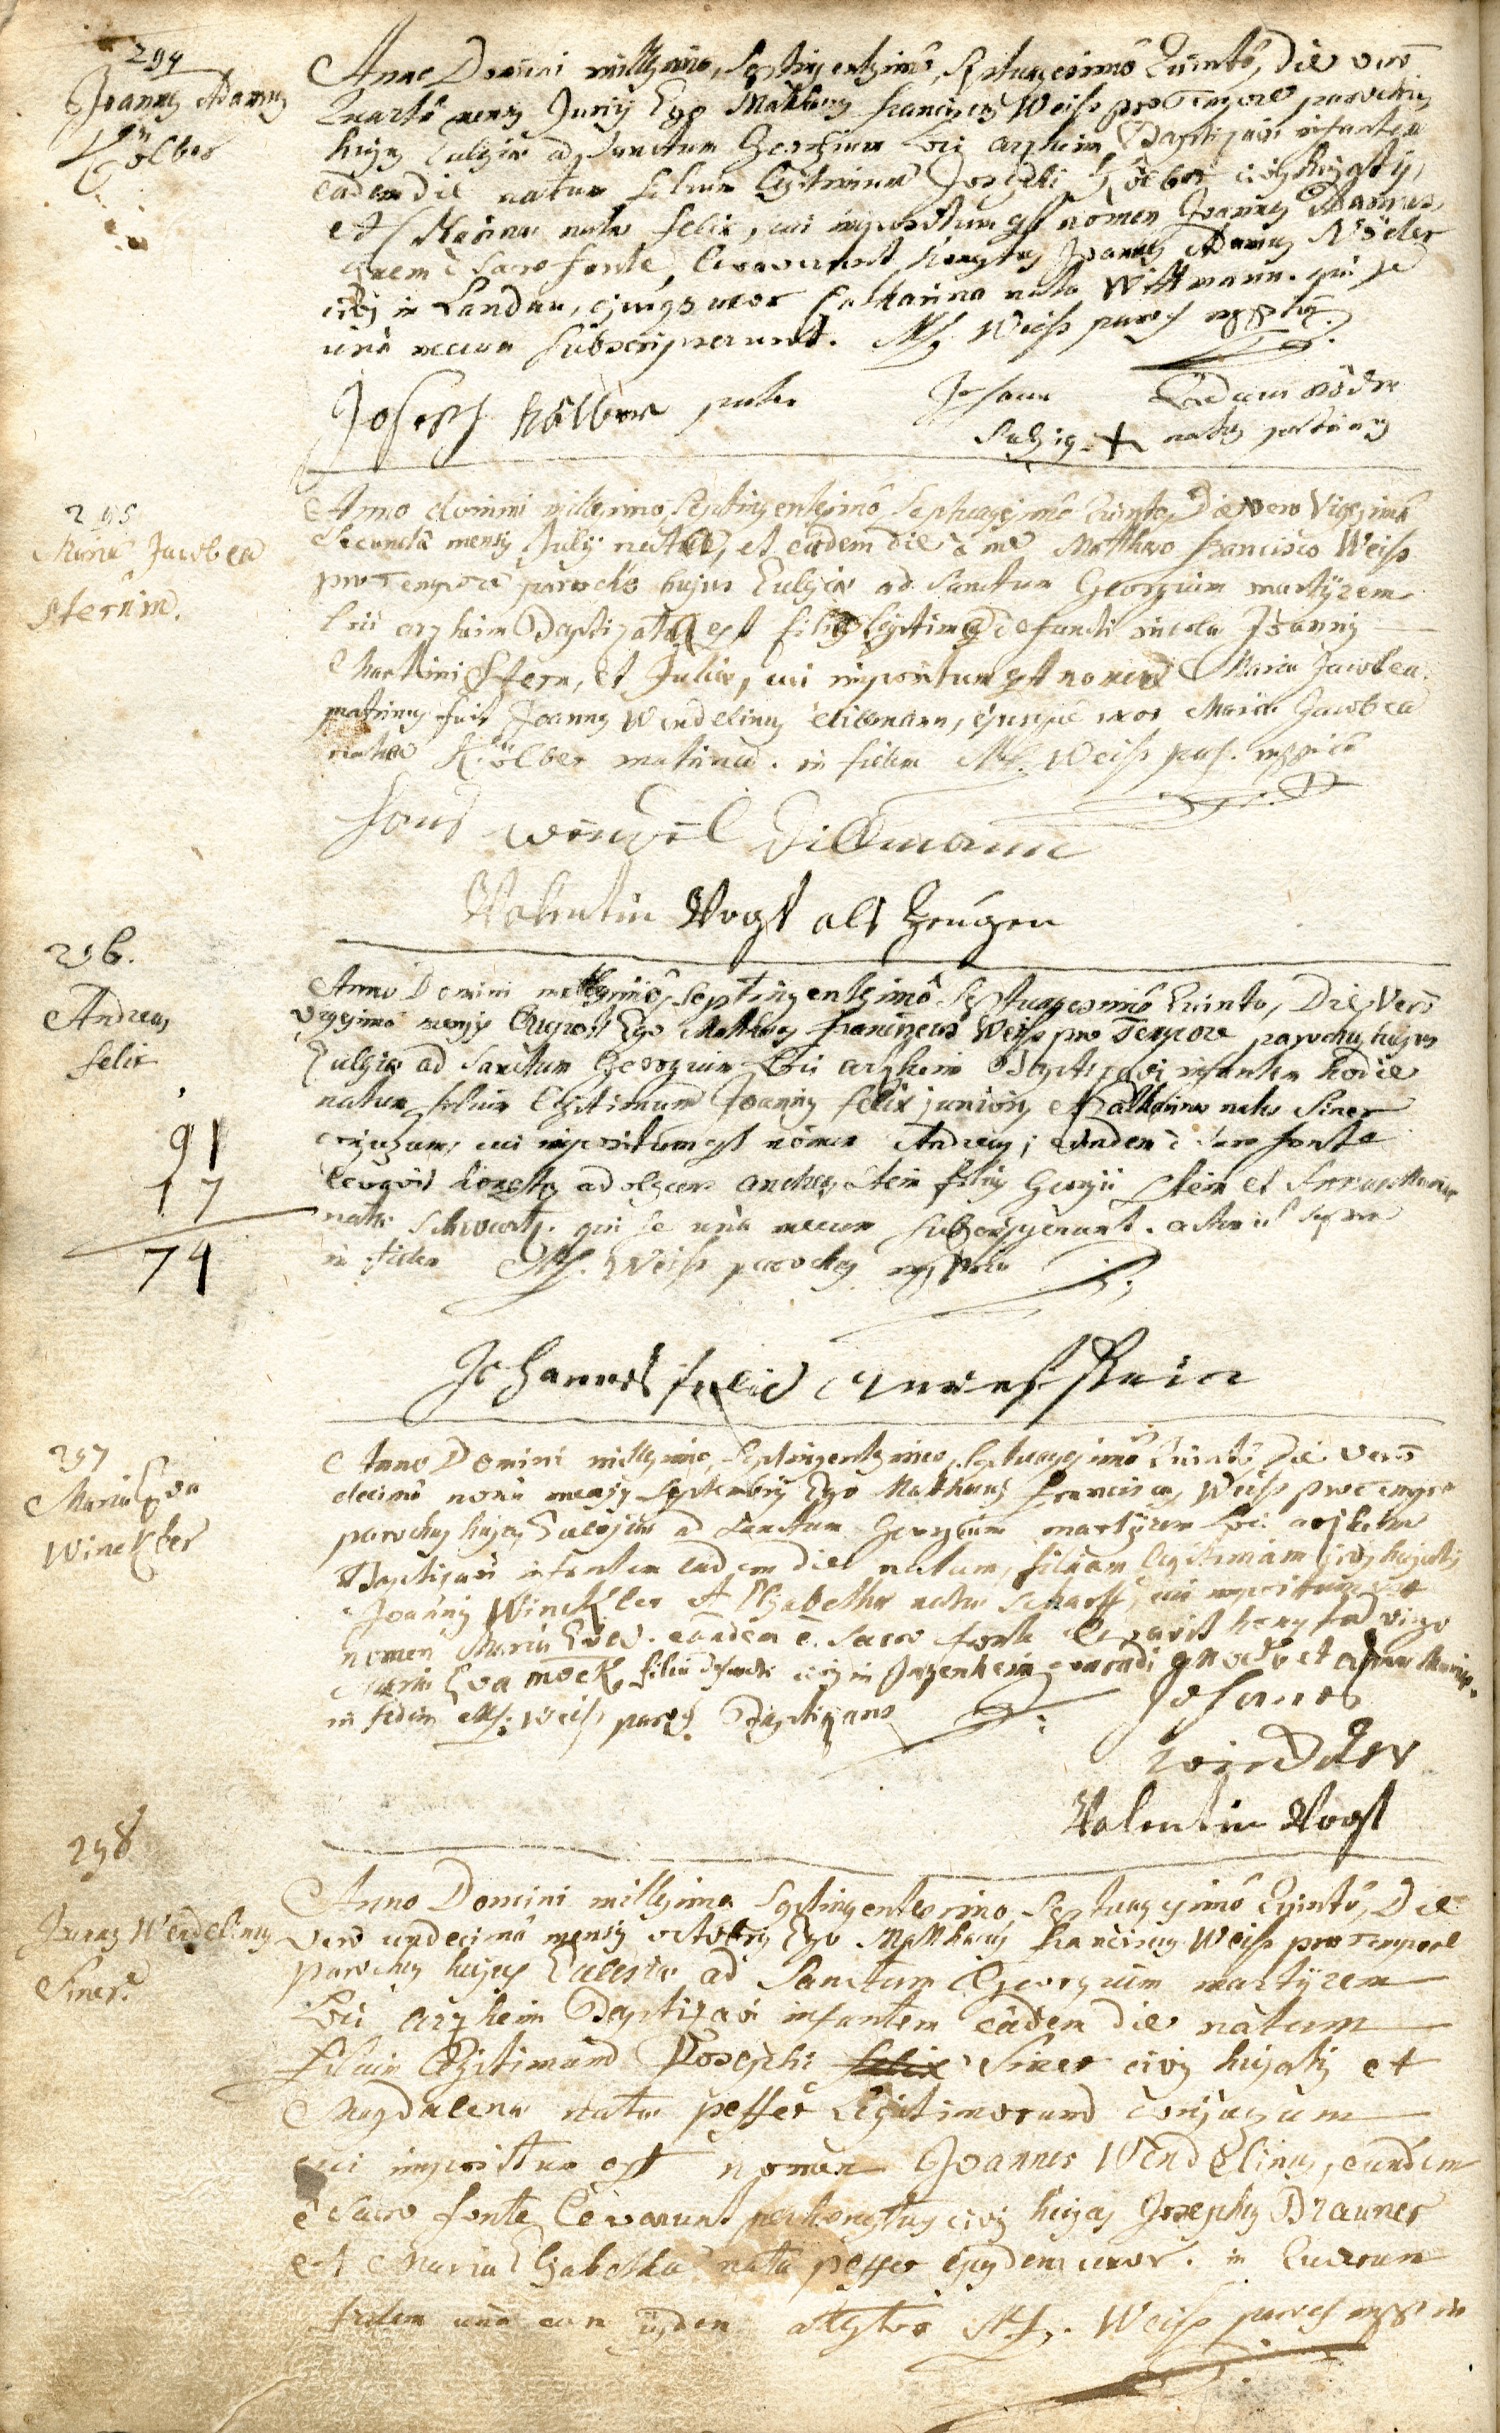 294
Joannes Adamus
Kölber
Anno Domini millesimo, septingentesimô, septuagesimô Quintô, die verô
Quartâ mensis Junij Ego Matthæus Franciscus Weiss pro Tempore parochus
hujus Ecclesiæ ad Sanctum Georgium loci arzheim Baptizavi infantem
eadem die natum filium legitimum Josephi Kölber civis hujatis,
et Mariæ natæ felix, cui impositum est nomen Joannes Adamus,
quem è sacro fonte levaverunt honestus Joannes Adamus Röder
civis in Landau, ejusque uxor Catharina nata Wittmann. qui se
unâ mecum subscripserunt. Mf. Weiss paroch
Joseph Kölber pater
Johann Adam Röder
+
295
Maria Jacobea
Sternin.
Anno domini millesimo, septingentesimô septuagesimô Quinto, Die vero Vigesimâ
secundâ mensis Julij nata, et eâdem die à me Matthæo Francisco Weiss
pro Tempore parocho hujus Ecclesiæ ad Sanctum Georgium martÿrem
loci arzheim Baptizata est filia legitima defuncti Joannis
Martini Stern, et Juliæ, cui impositum est nomen Maria Jacobea.
patrinus fuit Joannes Wendelinus dillmann, ejusque uxor Maria Jacobea
nata Kölber matrina. in fidem Mf. Weiss par.
Hans wendel Dillmann
Valentin Vogt als Zeugen
296.
Andreas
felix
91
17
74
Anno Domini millesimô, septingentesimô septuagesimô Quinto, Die Verô
vigesima mensis Augusti Ego Matthæus Franciscus Weiss pro Tempore parochus hujus
Ecclesiæ ad Sanctum Georgium Loci arzheim Baptizavi infantem hodie
natum filium legitimum Joannis felix junioris et Catharinæ natæ Siner
conjugum, cui impositum est nomen Andreas; eundem è sacro fonte
levavit honestus adolescens andreas stein filius Georgii stein et Annæ Mariæ
natæ Schwartz. qui se unâ mecum subscripserunt.
in fidem Mf. Weiss parochus
Johannes felix andreas stein
297
Maria Eva
Winckler
Anno Domini millesimo, septingentesimo, septuagesimô Quintô Die verô
decimâ nonâ mensis septembris Ego Matthæus Franciscus Weiss pro Tempore
parochus hujus Ecclesiæ ad Sanctum Georgium martÿrem loci arzheim
Baptizavi infantem eadem die natam, filiam legitimam civis hujatis
Joannis Winckler et Elisabethæ natæ scharff, cui impositum est
nomen Maria Eva. eandem è sacro fonte levavit honesta virgo
Maria Eva mock, filia defuncti civis in Inzenheim conradi mock et annæ Mariæ.
in fidem Mf. Weiss paroch. Baptizans
Johanes
winckler
Valentin Vogt
298
Joannes Wendelinus
Siner.
Anno Domini millesimo septingentesimo, septuagesimô Quintô, Die
vero undecimâ mensis octobris Ego Matthæus Franciscus Weiss pro Tempore
parochus hujus Ecclesiæ ad Sanctum Georgium martÿrem
Loci arzheim Baptizavi infantem eâdem die natum
filium legitimum Josephi felix Siner civis hujatis et
Magdalena nata peffer legitimorum conjugum
cui impositum est nomen Joannes Wendelinus, eundem
è sacro fonte levarunt perhonestus civis hujas Josephus Brauner
et Maria Elisabetha nata peffer ejusdem uxor. in quorum
fidem una cum iisdem attestor Mf. Weiss paroch